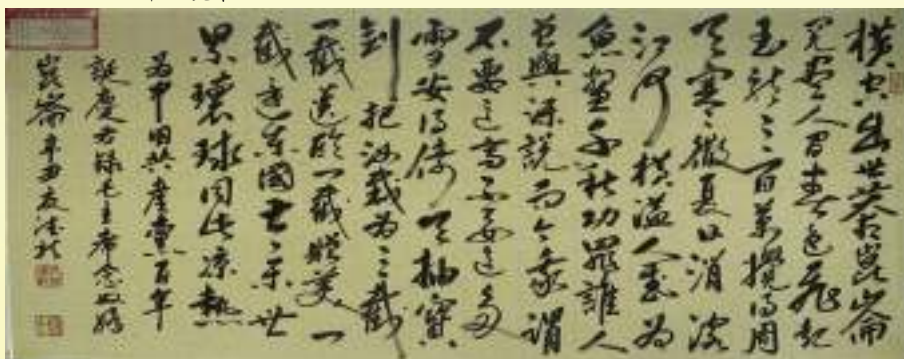 横空出世莽昆崙
阅尽人间春色飞起
玉龙三百万搅得周
天寒彻夏日消溶
江河横溢人或为
鱼鳖千秋功罪谁人
曾与评说而今我谓
不要这高不要这多
雪安得倚天抽宝
剑把汝裁为三截
一截遗欧一截赠美一
截还东国太平世
界环球同此凉热
为中国共产党百年
诞庆右录毛主席念奴娇
崑崙辛丑友